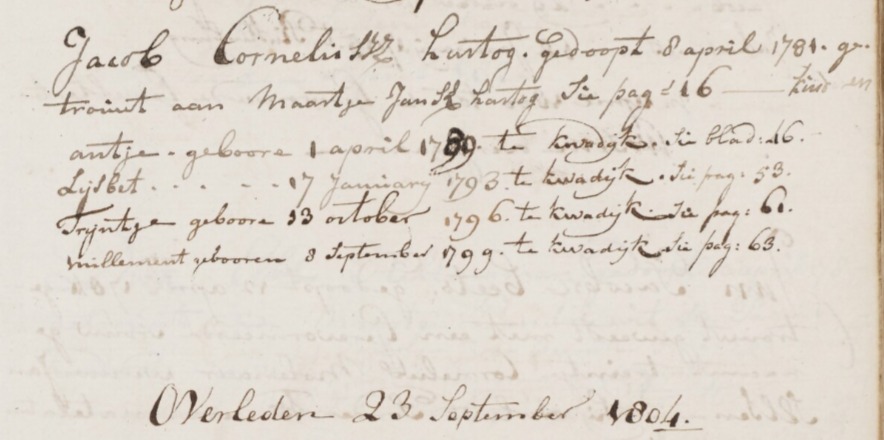 Jacob Cornelisz hartog. gedoopt 8 april 1781. ge-
trouwt aan Maartje Jansz hartog Sie pag: 16 — kinderen
antje - geboore 1 april 1789. te kwadijk. Sie blad: 46.
Lijsbet . . . - - 17 January 1793. te kwadijk. Sie pag: 53.
Trijntje geboore 13 october 1796. te kwadijk. Sie pag: 61.
Willement gebooren 8 September 1799. te kwadijk Sie pag: 63.
Overleden 23 September 1804.